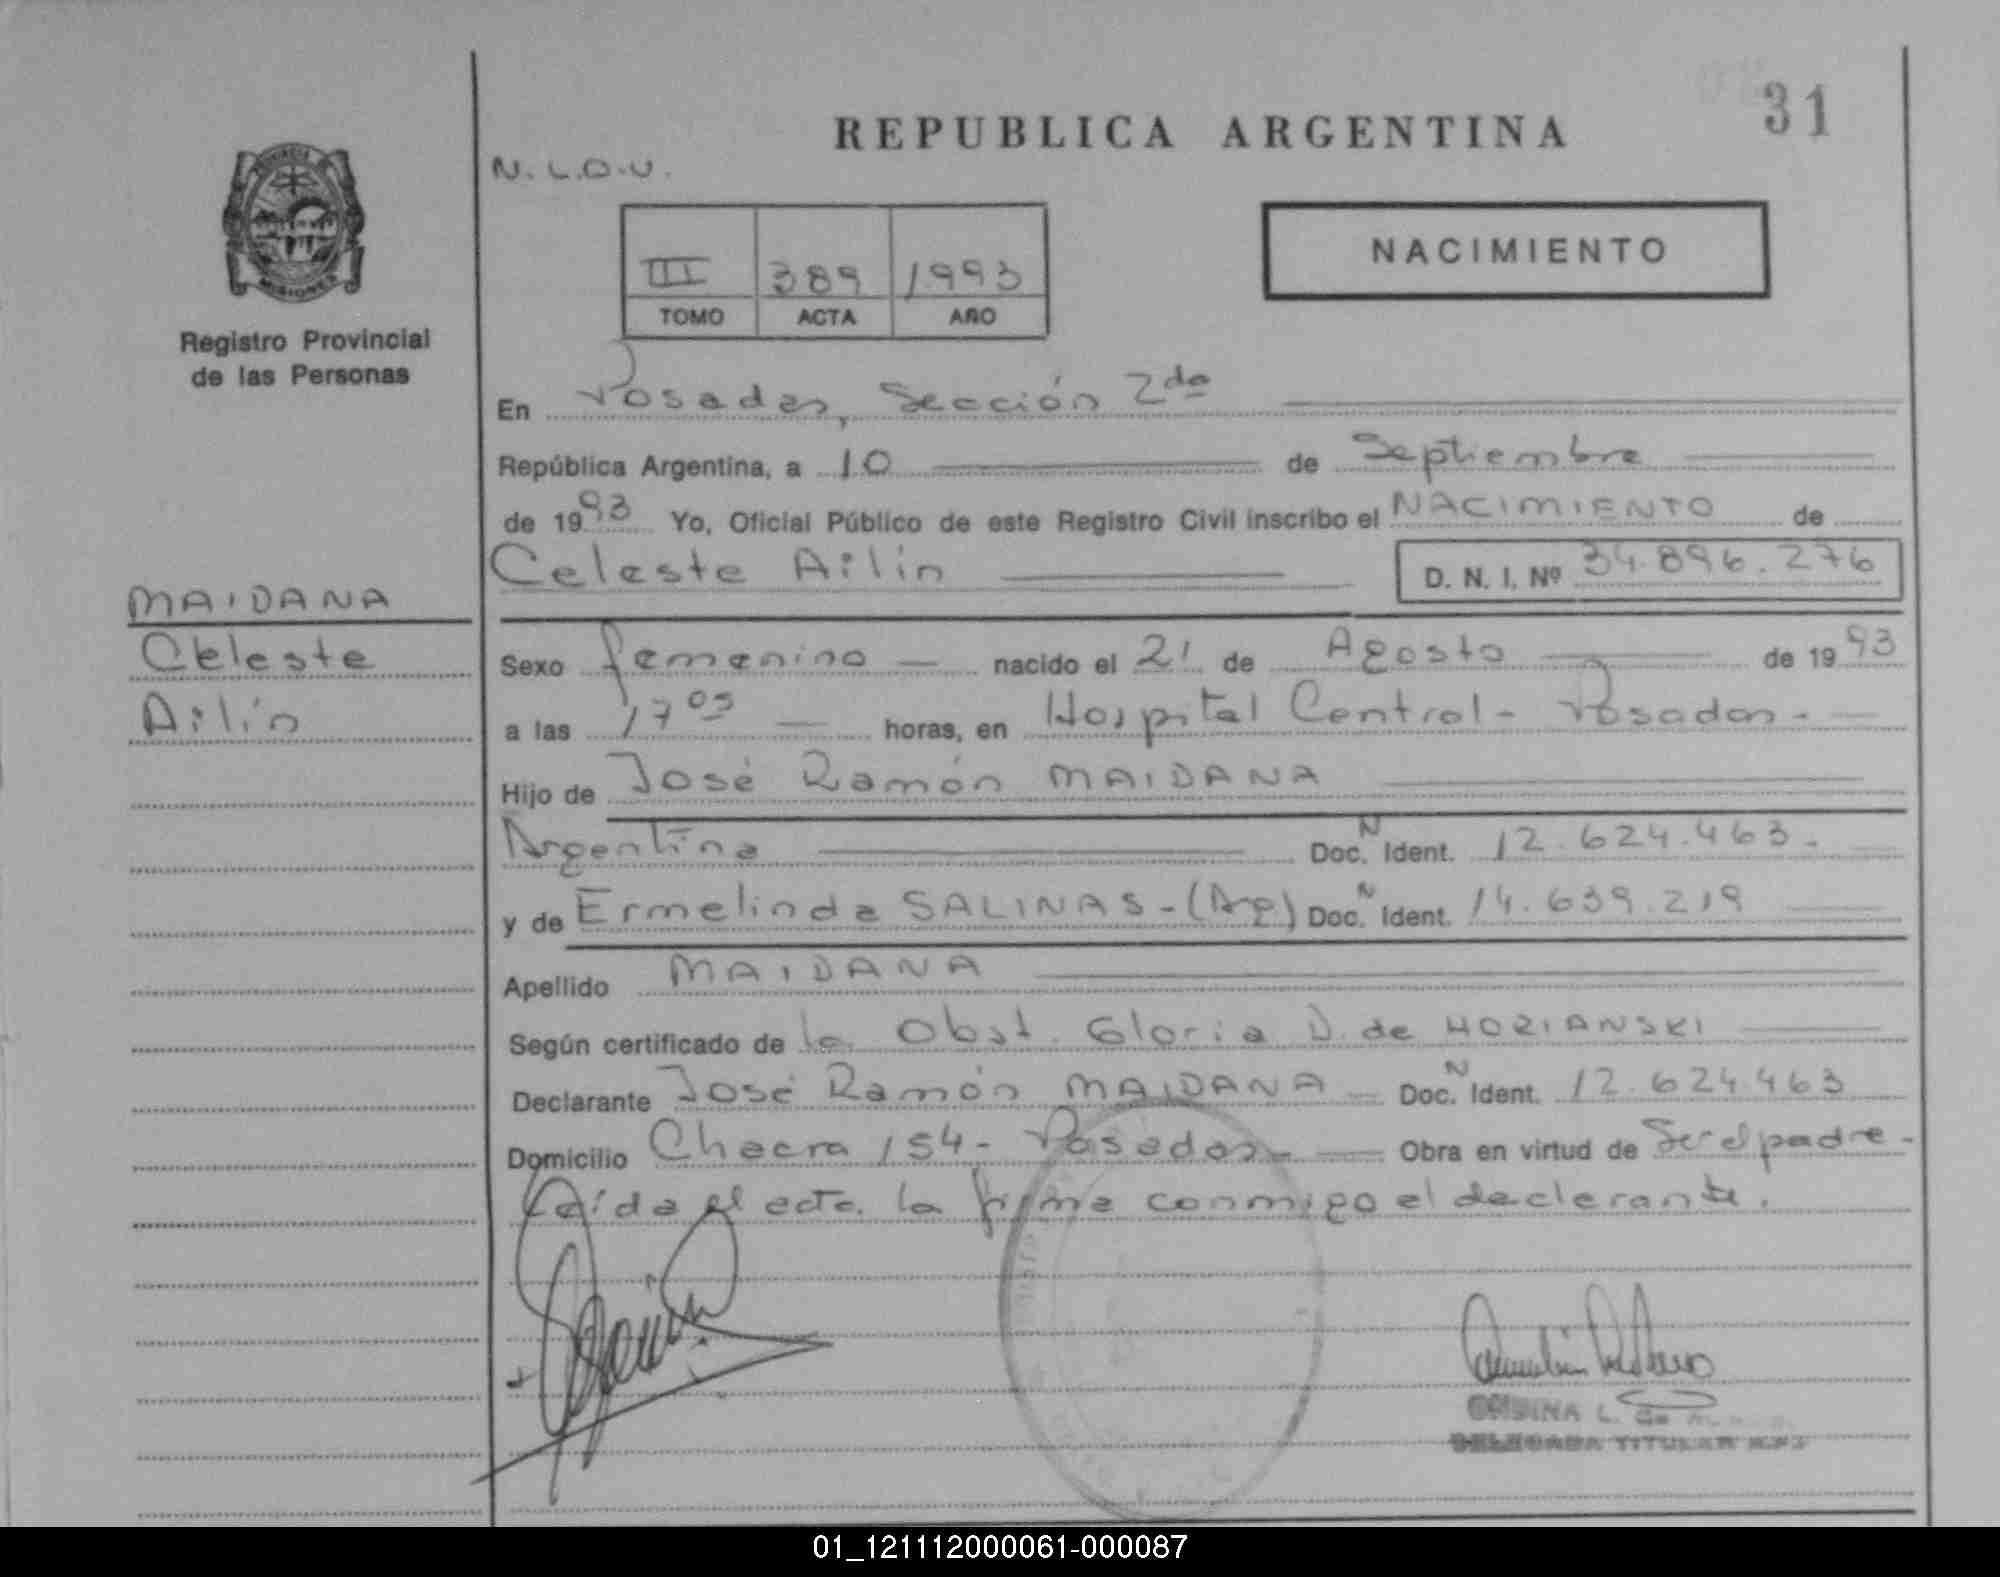 REPUBLICA ARGENTINA
31
N.L.O.V.
NACIMIENTO
III 389 1993
TOMO ACTA AÑO
PROVINCIA DE
MISIONES
Registro Provincial
de las Personas
En Posadas, Sección 2da
República Argentina, a 10 de Septiembre
de 1993 Yo, Oficial Público de este Registro Civil inscribo el NACIMIENTO de
Celeste Ailín D. N. I. Nº 34.896.276
MAIDANA
Celeste
Ailín
Sexo femenino nacido el 21 de Agosto de 1993
a las 17 05 horas, en Hospital Central - Posadas.-
Hijo de José Ramón MAIDANA
Argentina Doc. N Ident. 12.624.463.
y de Ermelinda SALINAS - (Arg) Doc. N Ident. 14.639.219
Apellido MAIDANA
Según certificado de la Obst. Gloria D. de HORIANSKI
Declarante José Ramón MAIDANA Doc. N Ident. 12.624.463
Domicilio Chacra 154 - Posadas.- Obra en virtud de Ser el padre.-
Leída el acta la firma conmigo el declarante.
L. de
DELEGADA TITULAR
01_121112000061-000087